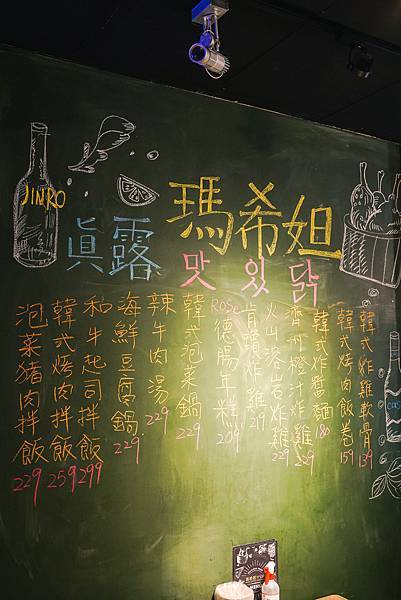 JINRO
眞露
瑪希妲
맛있닭
韓式炸雞軟骨 139
韓式烤肉飯卷 159
韓式炸醬麵 180
濟州橙汁炸雞 229
火山溶岩炸雞 229
炸雞 219
ROSE德腸年糕 209
韓式泡菜鍋 229
辣牛肉湯 229
海鮮豆腐鍋 229
和牛起司拌飯 299
韓式烤肉拌飯 259
泡菜豬肉拌飯 229